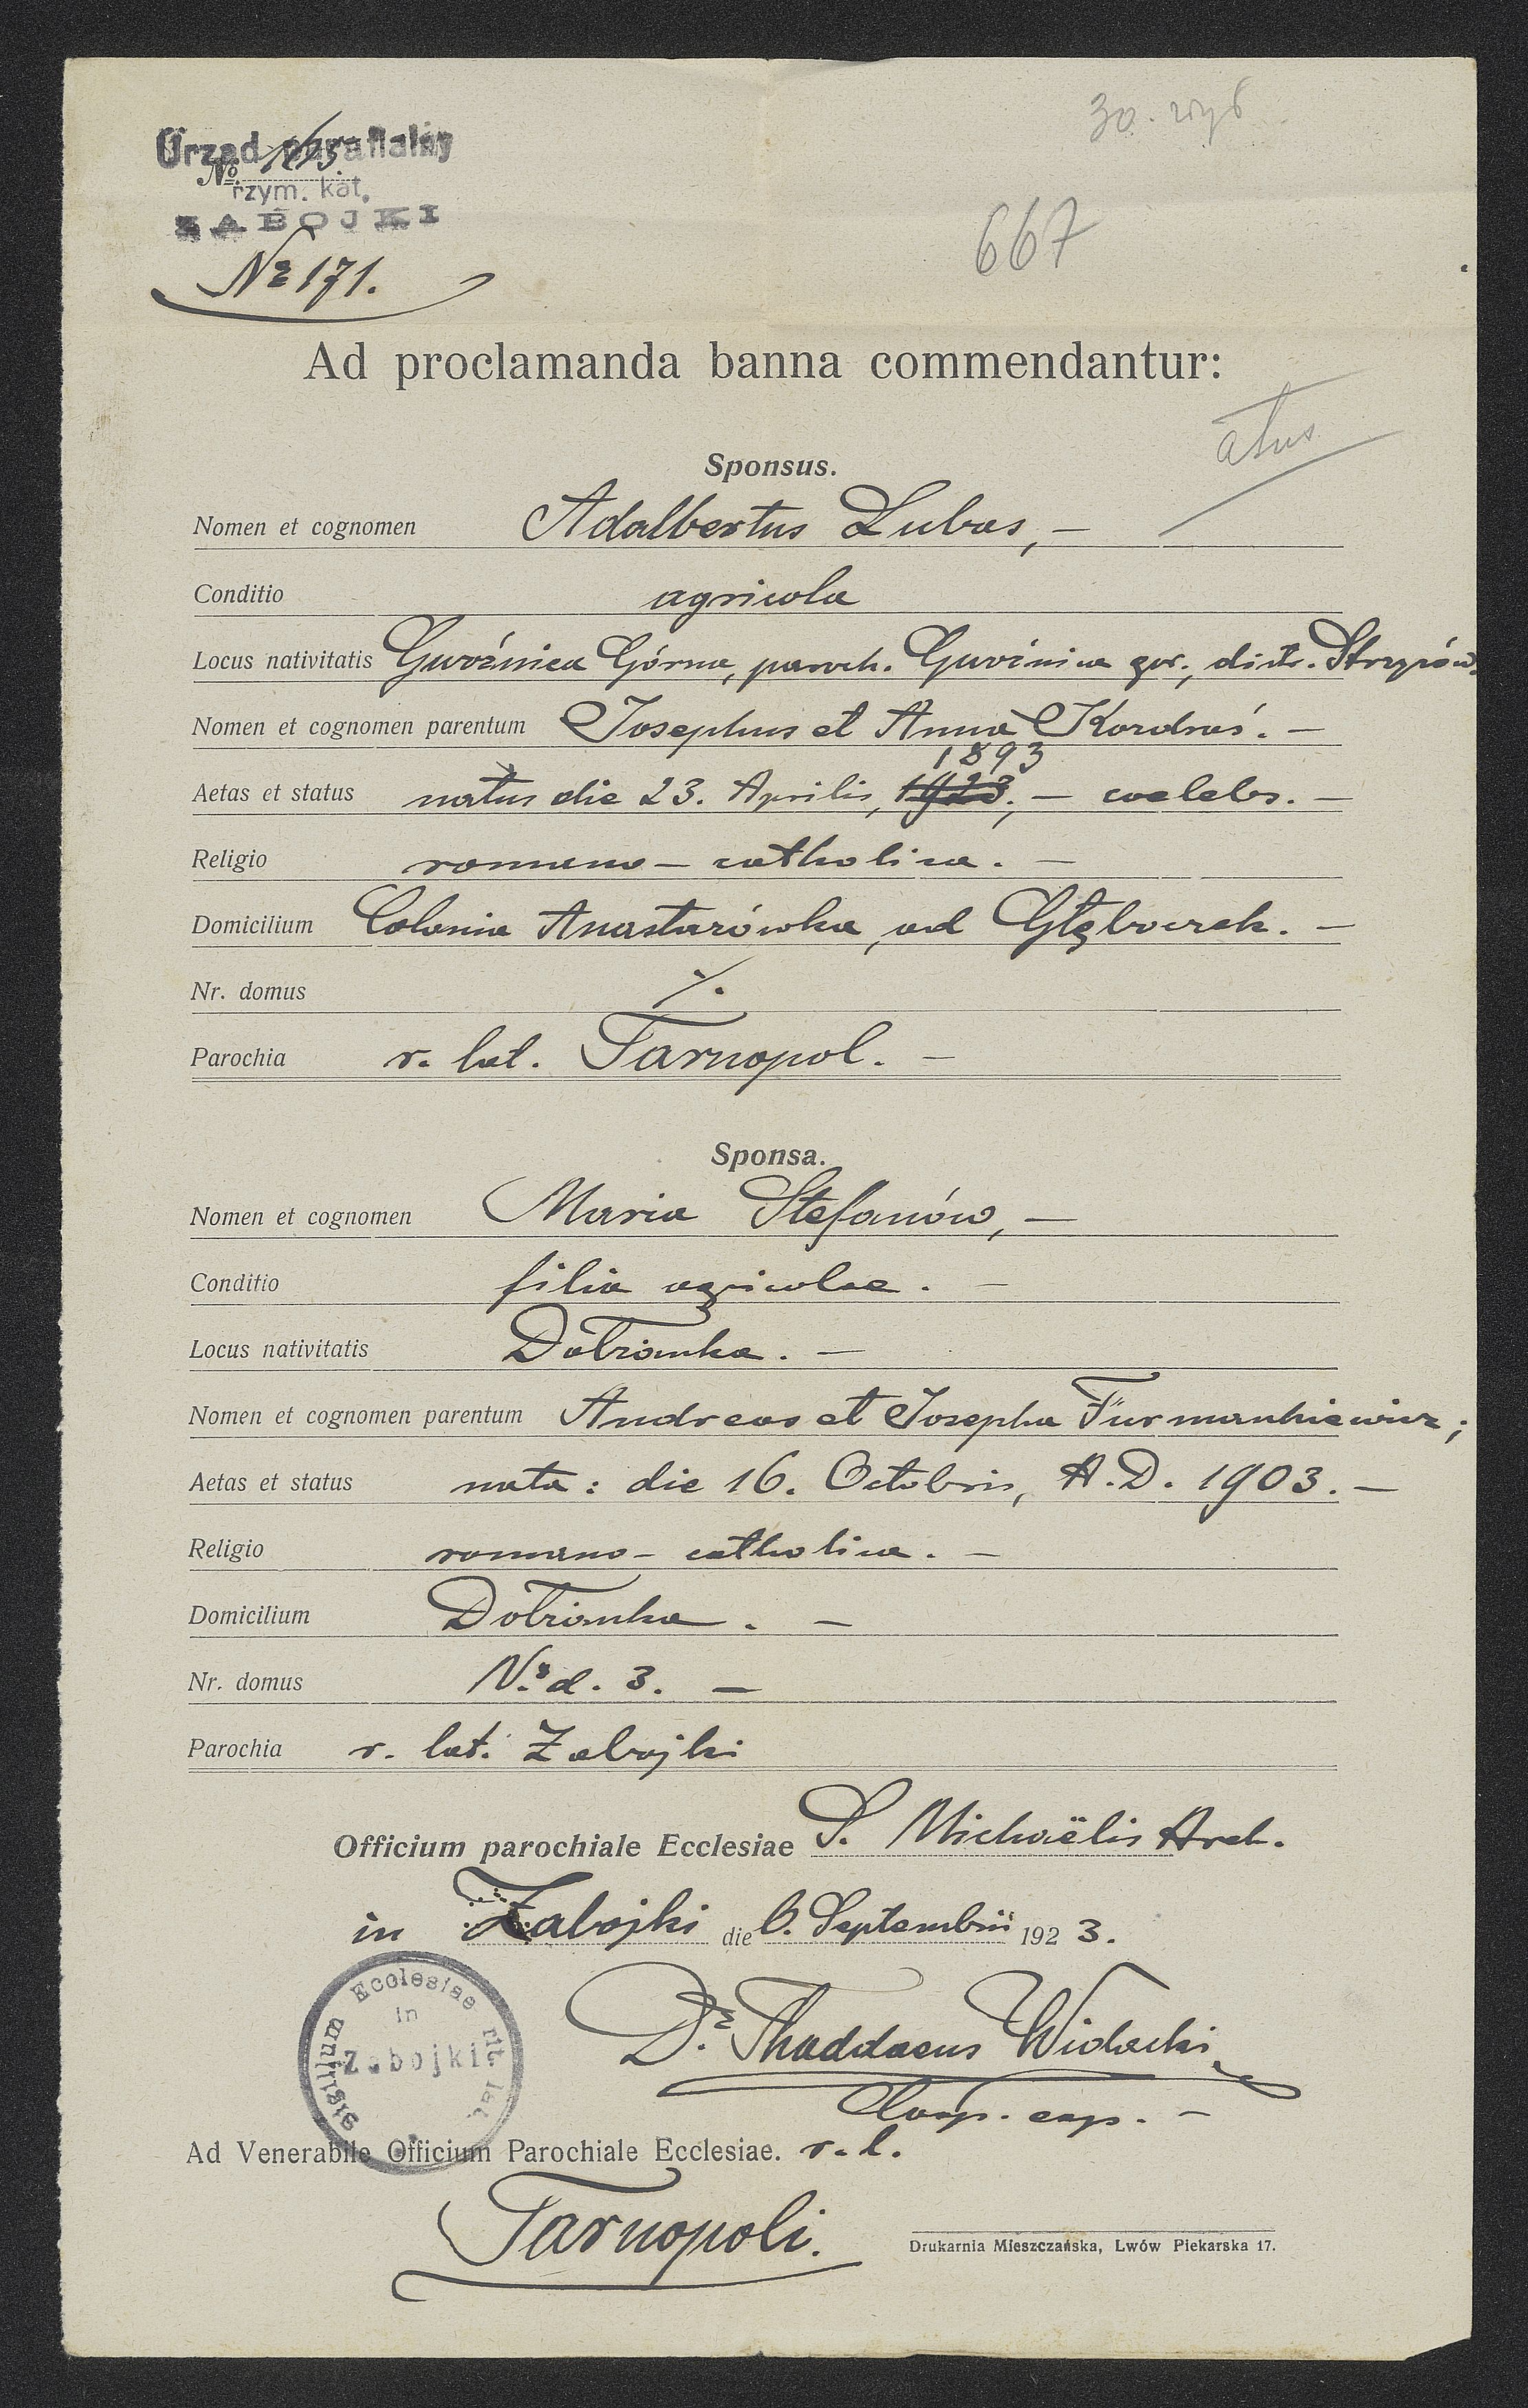 30.
Urząd parafialny
№ 163.
rzym. kat.
ZABOJKI
№ 171.
667
Ad proclamanda banna commendantur:
Sponsus.
Nomen et cognomen Adalbertus Lubas, —
Conditio agricola
Locus nativitatis Gwoźnica Górna, paroch. Gwoźnica gór., distr. Strzyżów.
Nomen et cognomen parentum Josephus et Anna Kordraś. —
1893
Aetas et status natus die 23. Aprilis, 1923, — coelebs. —
Religio romano — catholica. —
Domicilium Colonia Anastazówka, ad Głęboczek. —
Nr. domus ./.
Parochia r. lat. Tarnopol. —
Sponsa.
Nomen et cognomen Maria Stefanów, —
Conditio filia agricolae. —
Locus nativitatis Dołżanka. —
Nomen et cognomen parentum Andreas et Josepha Furmankiewicz;
Aetas et status nata: die 16. Octobris, A.D. 1903. —
Religio romano — catholica. —
Domicilium Dołżanka. —
Nr. domus N.º d. 3. —
Parochia r. lat. Zabojki
Officium parochiale Ecclesiae S. Michaëlis Arch.
in Zabojki die 6. Septembris 1923.
Sigillum Ecclesiae rit. lat.
in
Zabojki
Dr. Thaddaeus Widacki
Coop. exp. —
Ad Venerabile Officium Parochiale Ecclesiae. r. l.
Tarnopoli.
Drukarnia Mieszczańska, Lwów Piekarska 17.